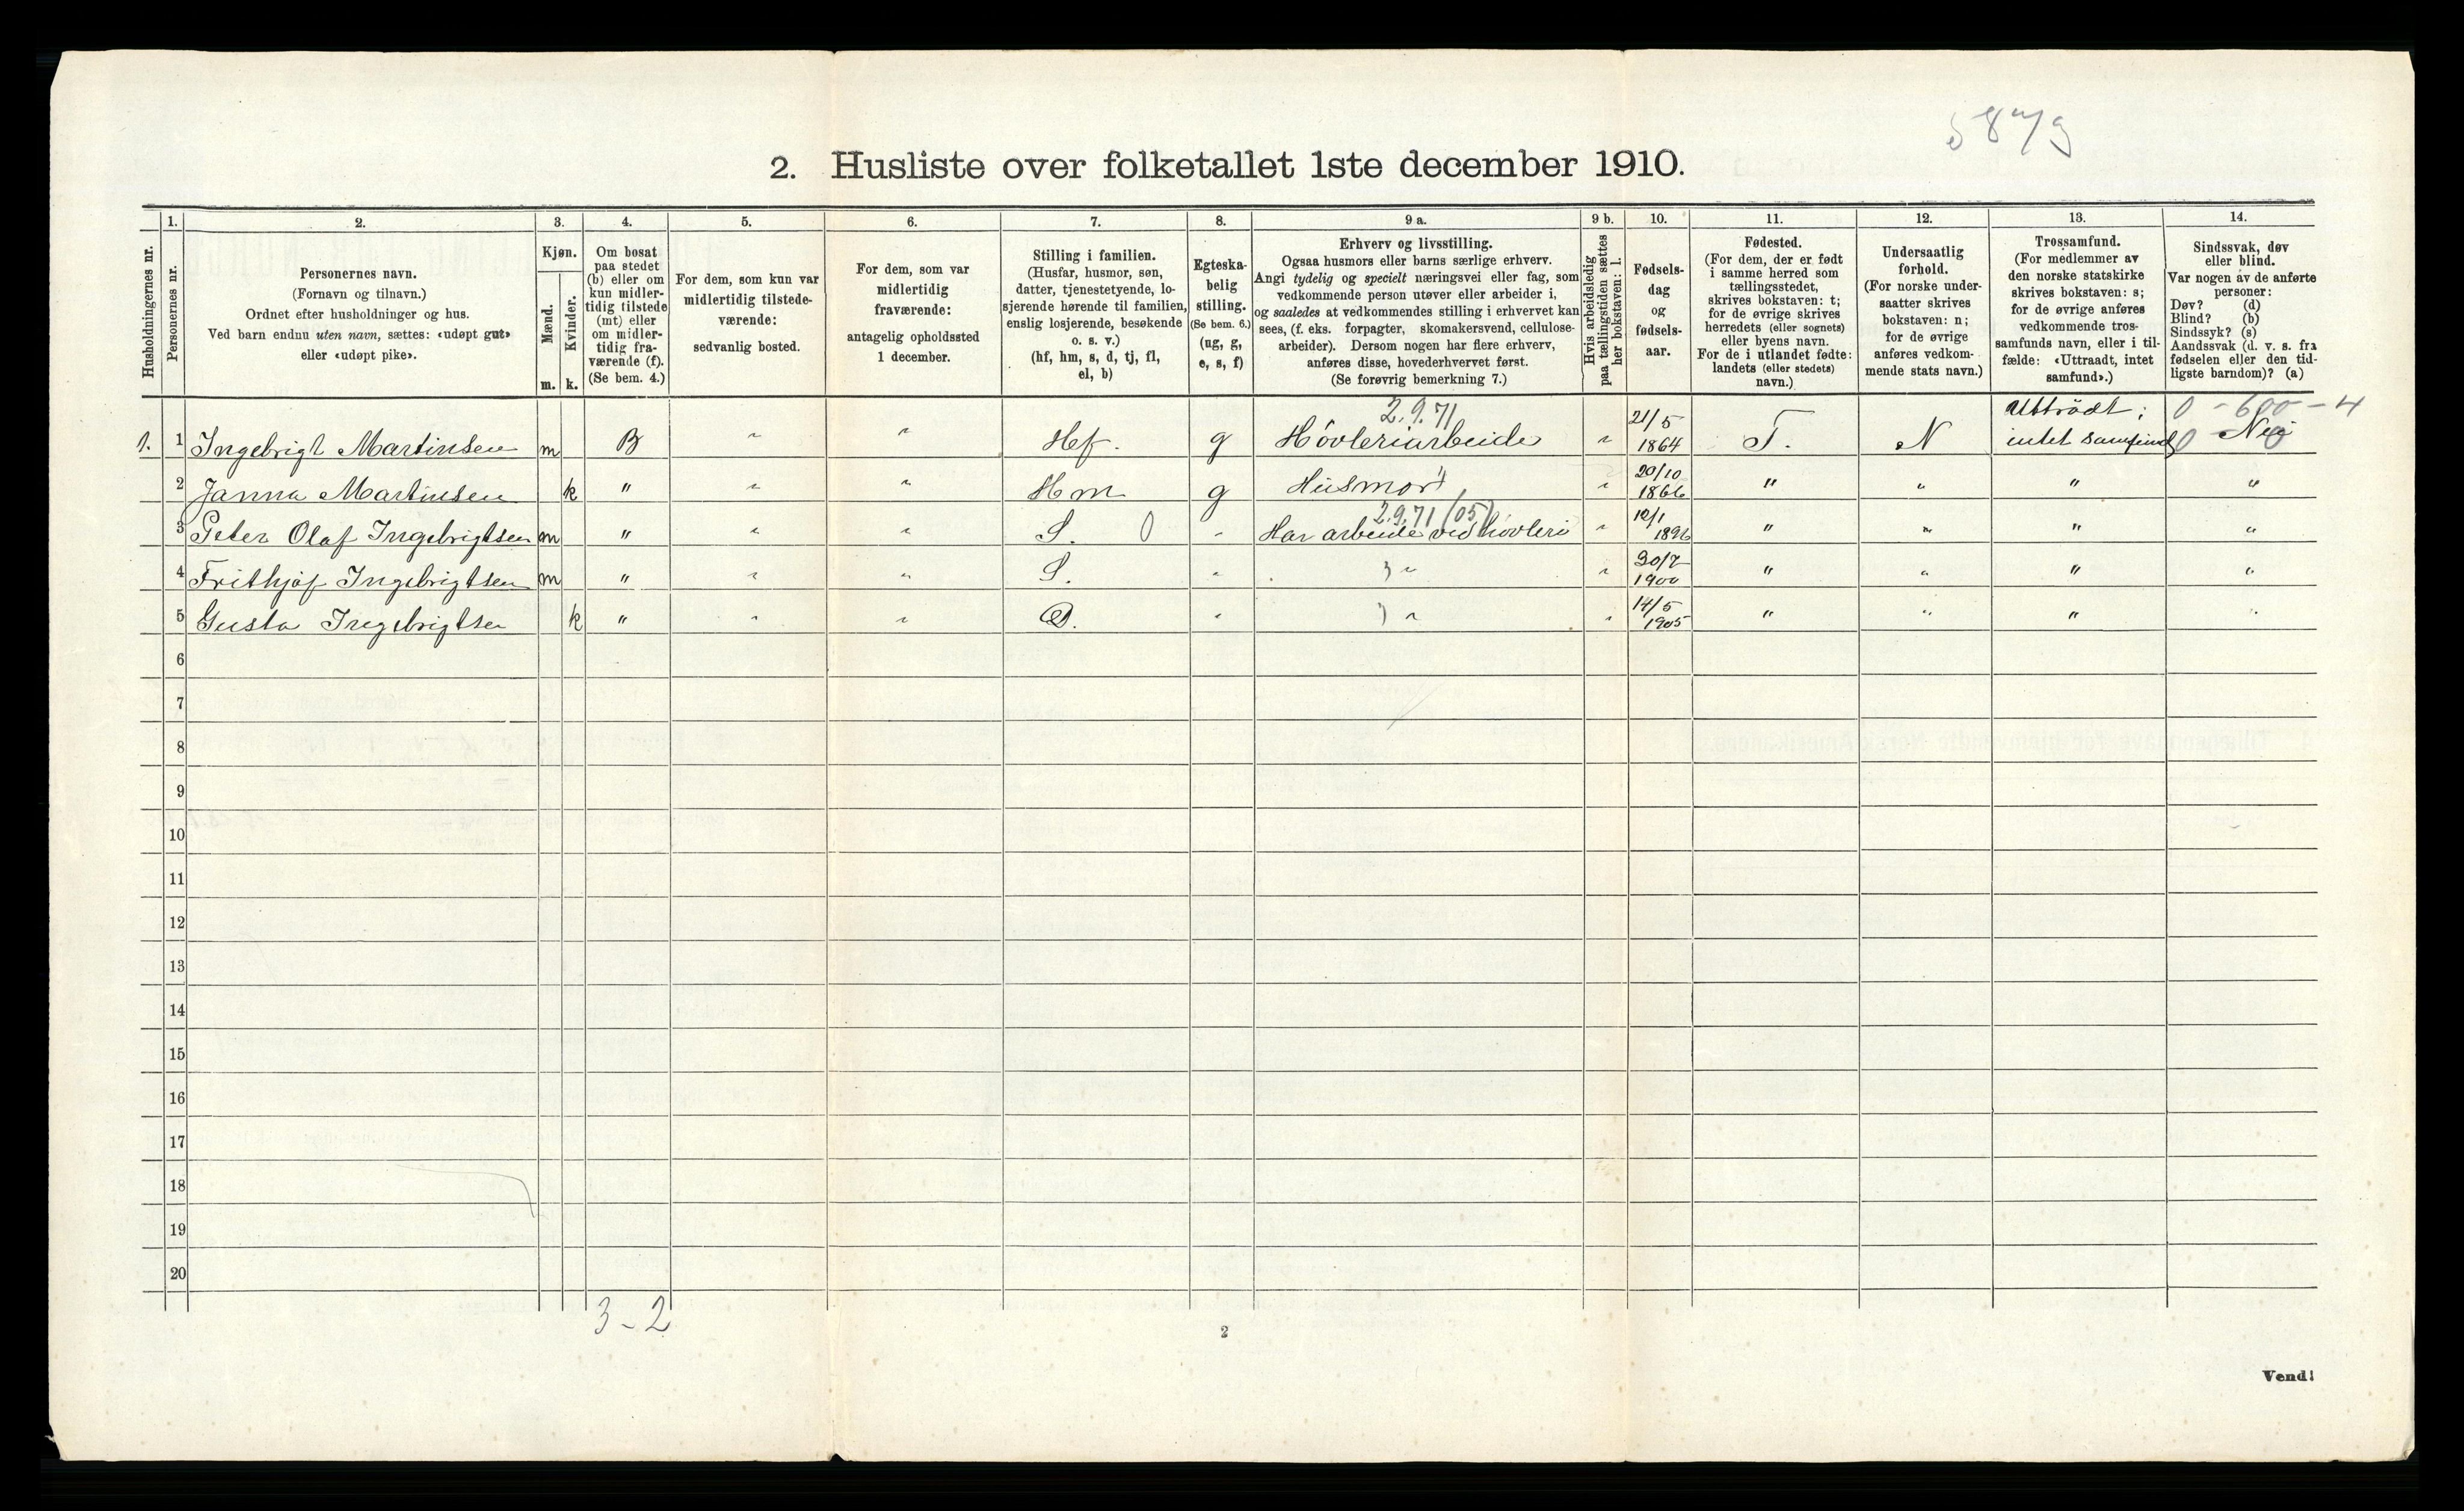 2. Husliste over folketallet 1ste december 1910.
Husholdningernes nr.
1.
Personernes nr.
2.
Personernes navn.
(Fornavn og tilnavn.)
Ordnet efter husholdninger og hus.
Ved barn endnu uten navn, sættes: «udøpt gut»
eller «udøpt pike».
3.
Kjøn.
Mænd.
m.
Kvinder.
k.
4.
Om bosat
paa stedet
(b) eller om
kun midler-
tidig tilstede
(mt) eller
om midler-
tidig fra-
værende (f).
(Se bem. 4.)
5.
For dem, som kun var
midlertidig tilstede-
værende:
sedvanlig bosted.
6.
For dem, som var
midlertidig
fraværende:
antagelig opholdssted
1 december.
7.
Stilling i familien.
(Husfar, husmor, søn,
datter, tjenestetyende, lo-
sjerende hørende til familien,
enslig losjerende, besøkende
o. s. v.)
(hf, hm, s, d, tj, fl,
el, b)
8.
Egteska-
belig
stilling.
(Se bem. 6.)
(ug, g,
e, s, f)
9 a.
Erhverv og livsstilling.
Ogsaa husmors eller barns særlige erhverv.
Angi tydelig og specielt næringsvei eller fag, som
vedkommende person utøver eller arbeider i,
og saaledes at vedkommendes stilling i erhvervet kan
sees, (f. eks. forpagter, skomakersvend, cellulose-
arbeider). Dersom nogen har flere erhverv,
anføres disse, hovederhvervet først.
(Se forøvrig bemerkning 7.)
9 b.
Hvis arbeidsledig
paa tællingstiden sættes
her bokstaven: l.
10.
Fødsels-
dag
og
fødsels-
aar.
11.
Fødested.
(For dem, der er født
i samme herred som
tællingsstedet,
skrives bokstaven: t;
for de øvrige skrives
herredets (eller sognets)
eller byens navn.
For de i utlandet fødte:
landets (eller stedets)
navn.)
12.
Undersaatlig
forhold.
(For norske under-
saatter skrives
bokstaven: n;
for de øvrige
anføres vedkom-
mende stats navn.)
13.
Trossamfund.
(For medlemmer av
den norske statskirke
skrives bokstaven: s;
for de øvrige anføres
vedkommende tros-
samfunds navn, eller i til-
fælde: «Uttraadt, intet
samfund».)
14.
Sindssvak, døv
eller blind.
Var nogen av de anførte
personer:
Døv? (d)
Blind? (b)
Sindssyk? (s)
Aandssvak (d. v. s. fra
fødselen eller den tid-
ligste barndom)? (a)
2.9.71 21/5 Uttrådt; 0 - 600 - 4
1. 1 Ingebrigt Martinsen m B " " Hf. g Høvleriarbeide " 1864 T. N intet samfund 0 Nei 0
20/10
2 Janna Martinsen k " " " Hm g Husmor " 1866 " " " "
2.9.71 (05)
3 Peter Olaf Ingebrigtsen m " " " S. 0 - Har arbeide ved høvleri " 1896 " " " "
4 Frithjof Ingebrigtsen m " " " S. " " " 30/7 1900 " " " "
5 Gusta Ingebrigtsen k " " " D. " " " 14/5 1905 " " " "
6
7
8
9
10
11
12
13
14
15
16
17
18
19
20
3 - 2
2
Vend!